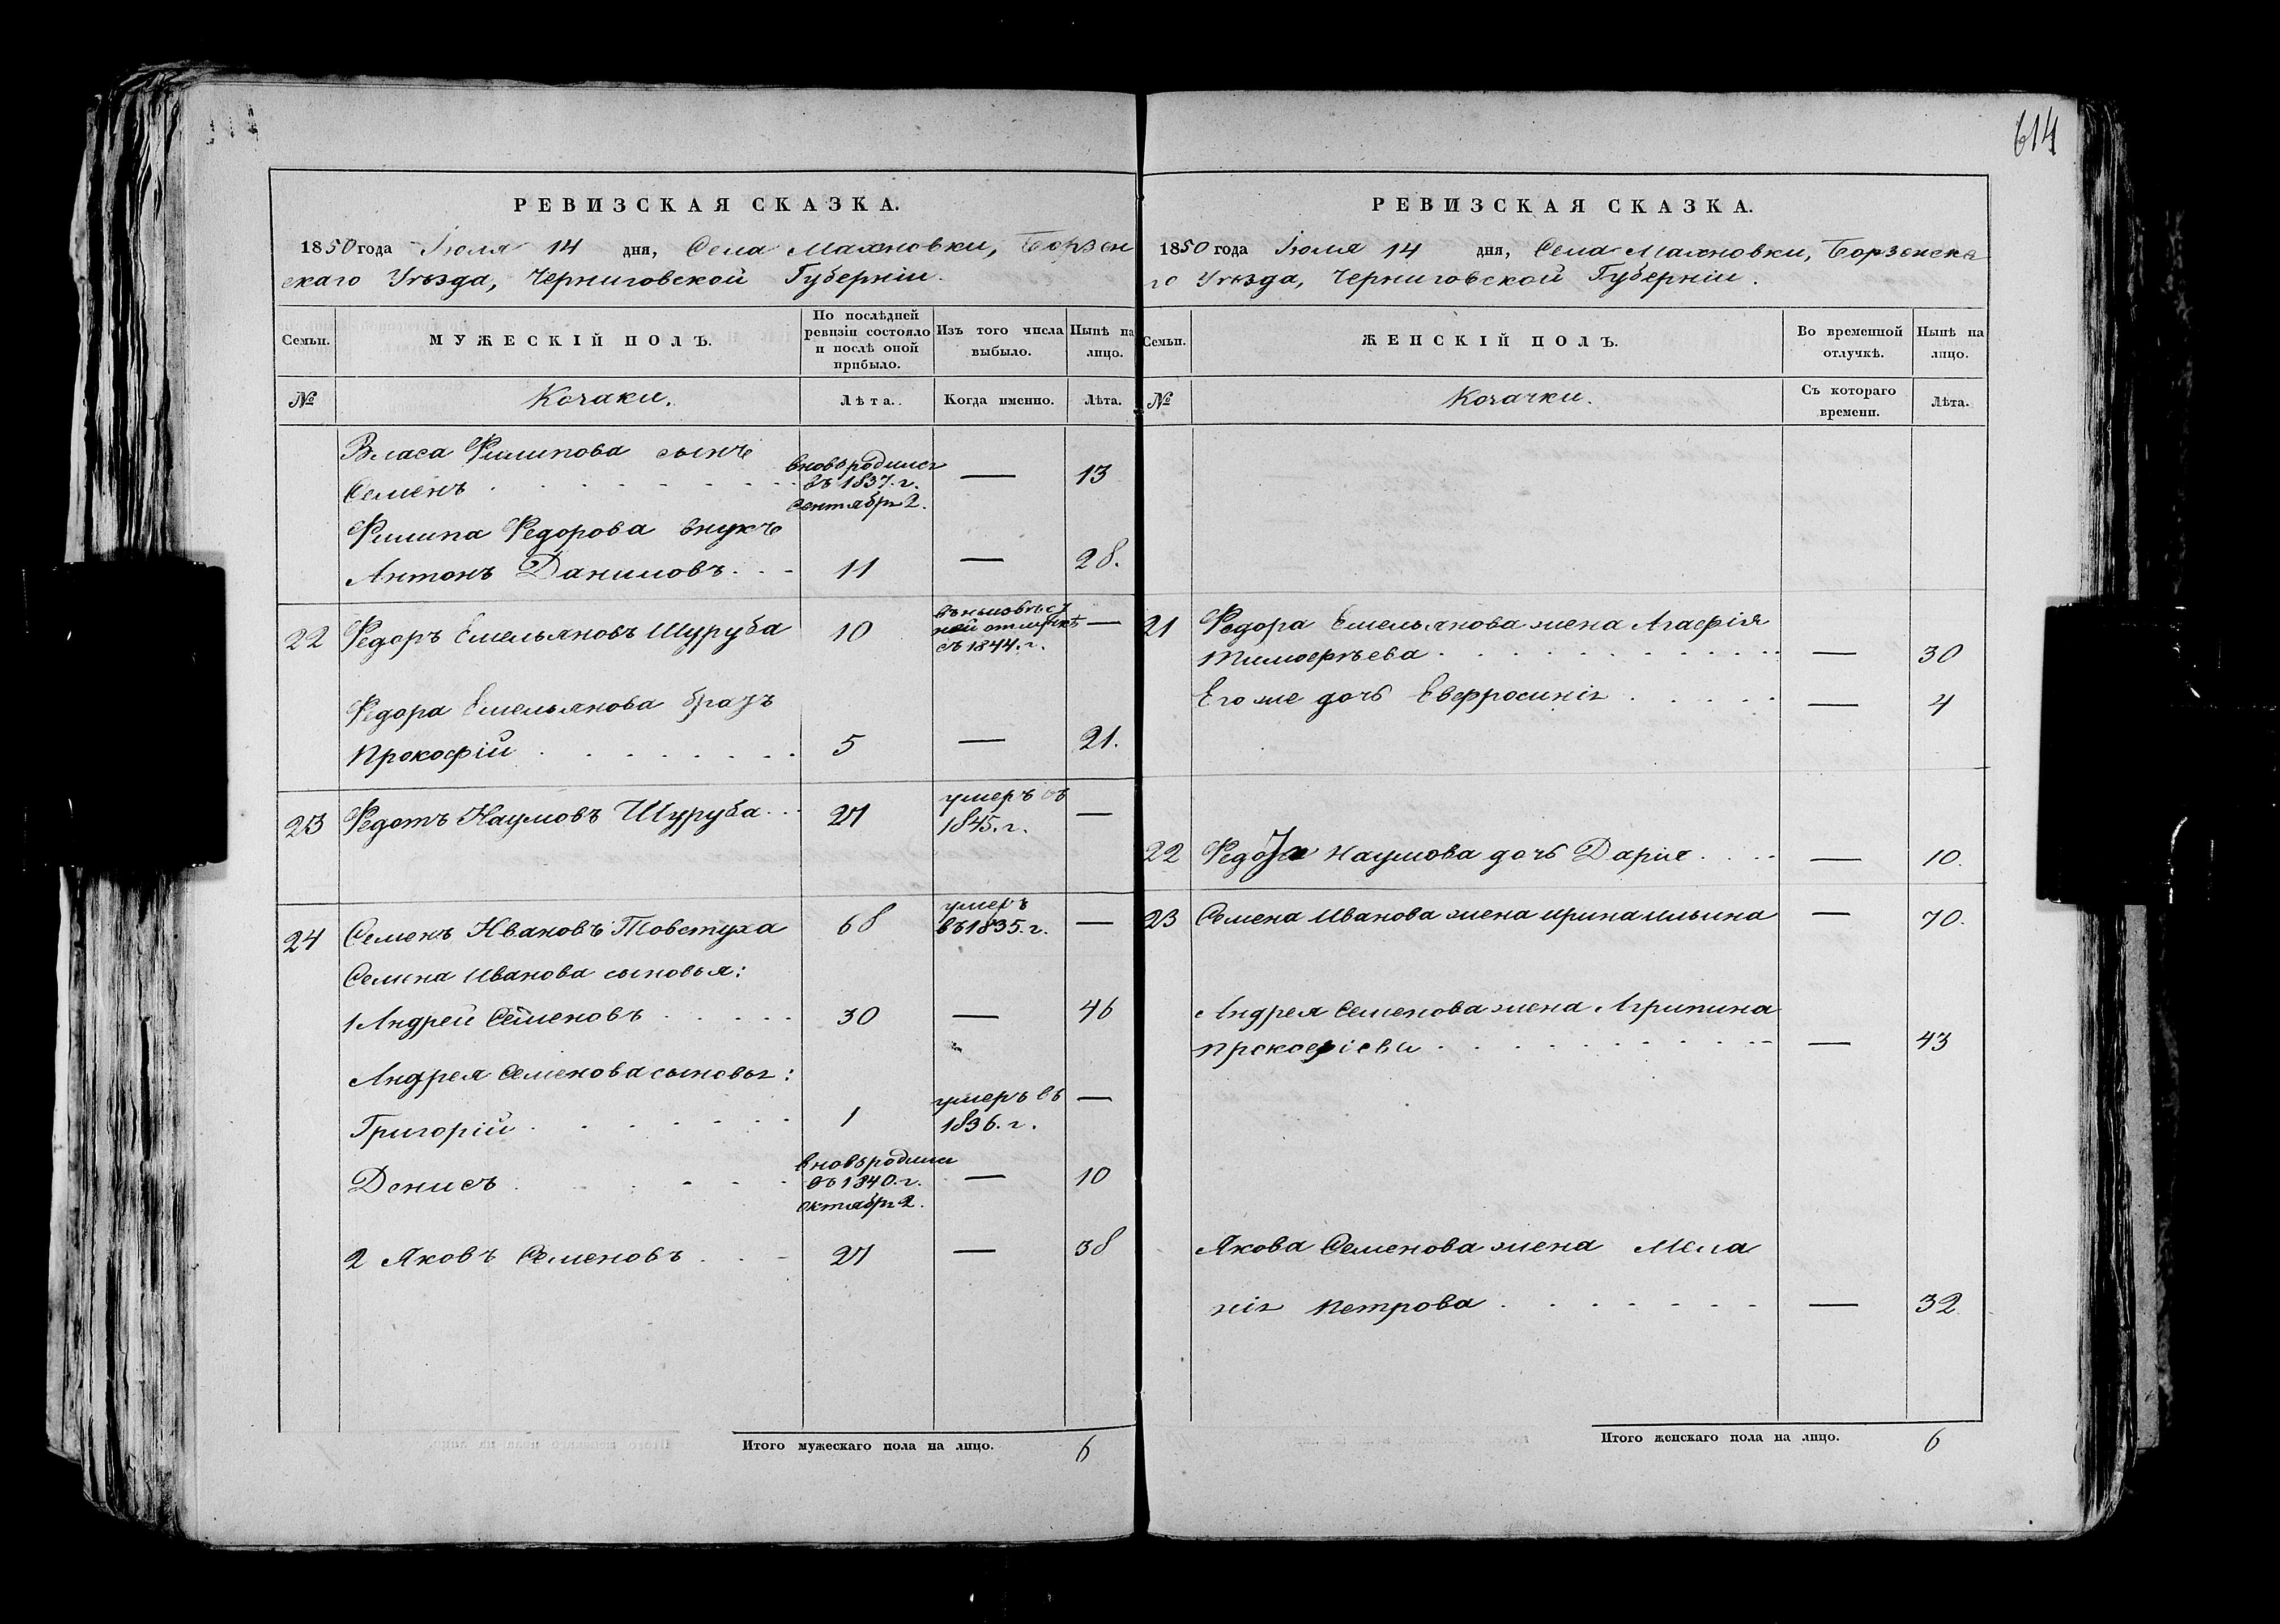 614
РЕВИЗСКАЯ СКАЗКА.
1850 года Іюля 14 дня, Села Махновки, Борзен
скаго Уѣзда, Черниговской Губерніи.
Семьи.
МУЖЕСКІЙ ПОЛЪ.
По послѣдней
ревизіи состояло
и послѣ оной
прибыло.
Изъ того числа
выбыло.
Нынѣ на
лицо.
№
Козаки.
Лѣта.
Когда именно.
Лѣта.
Власа Филипова сынъ
Семенъ . . . вновь родился въ 1837. г. сентября 2. — 13
Филипа Федорова внукъ
Антонъ Даниловъ . . 11 — 28.
22 Федоръ Емельяновъ Шуруба 10 отлучкѣ съ 1844. г. —
Федора Емельянова братъ
Прокофій . . . 5 — 21.
23 Федотъ Наумовъ Шуруба . . 27 умеръ въ 1845. г. —
24 Семенъ Ивановъ Товстуха 68 умеръ въ 1835. г. —
Семена Иванова сыновья:
1 Андрей Семеновъ . . . 30 — 46
Андрея Семенова сыновья:
Григорій . . . 1 умеръ въ 1836. г. —
Денисъ . . . вновь родился въ 1840. г. октября 2. — 10
2 Яковъ Семеновъ . . . 27 — 38
Итого мужескаго пола на лицо. 6
РЕВИЗСКАЯ СКАЗКА.
1850 года Іюля 14 дня, Села Махновки, Борзенска
го Уѣзда, Черниговской Губерніи.
Семьи.
ЖЕНСКІЙ ПОЛЪ.
Во временной
отлучкѣ.
Нынѣ на
лицо.
№
Козачки.
Съ котораго
времени.
Лѣта.
21 Федора Емельянова жена Агафія
Тимофѣева . . . — 30
Его же дочь Евфросинія . . . — 4
22 Федота Наумова дочь Дарія . . . — 10.
23 Семена Иванова жена Ирина Ильина — 70.
Андрея Семенова жена Агрипина
Прокофіева . . . — 43
Якова Семенова жена Мела
нія Петрова . . . — 32
Итого женскаго пола на лицо. 6